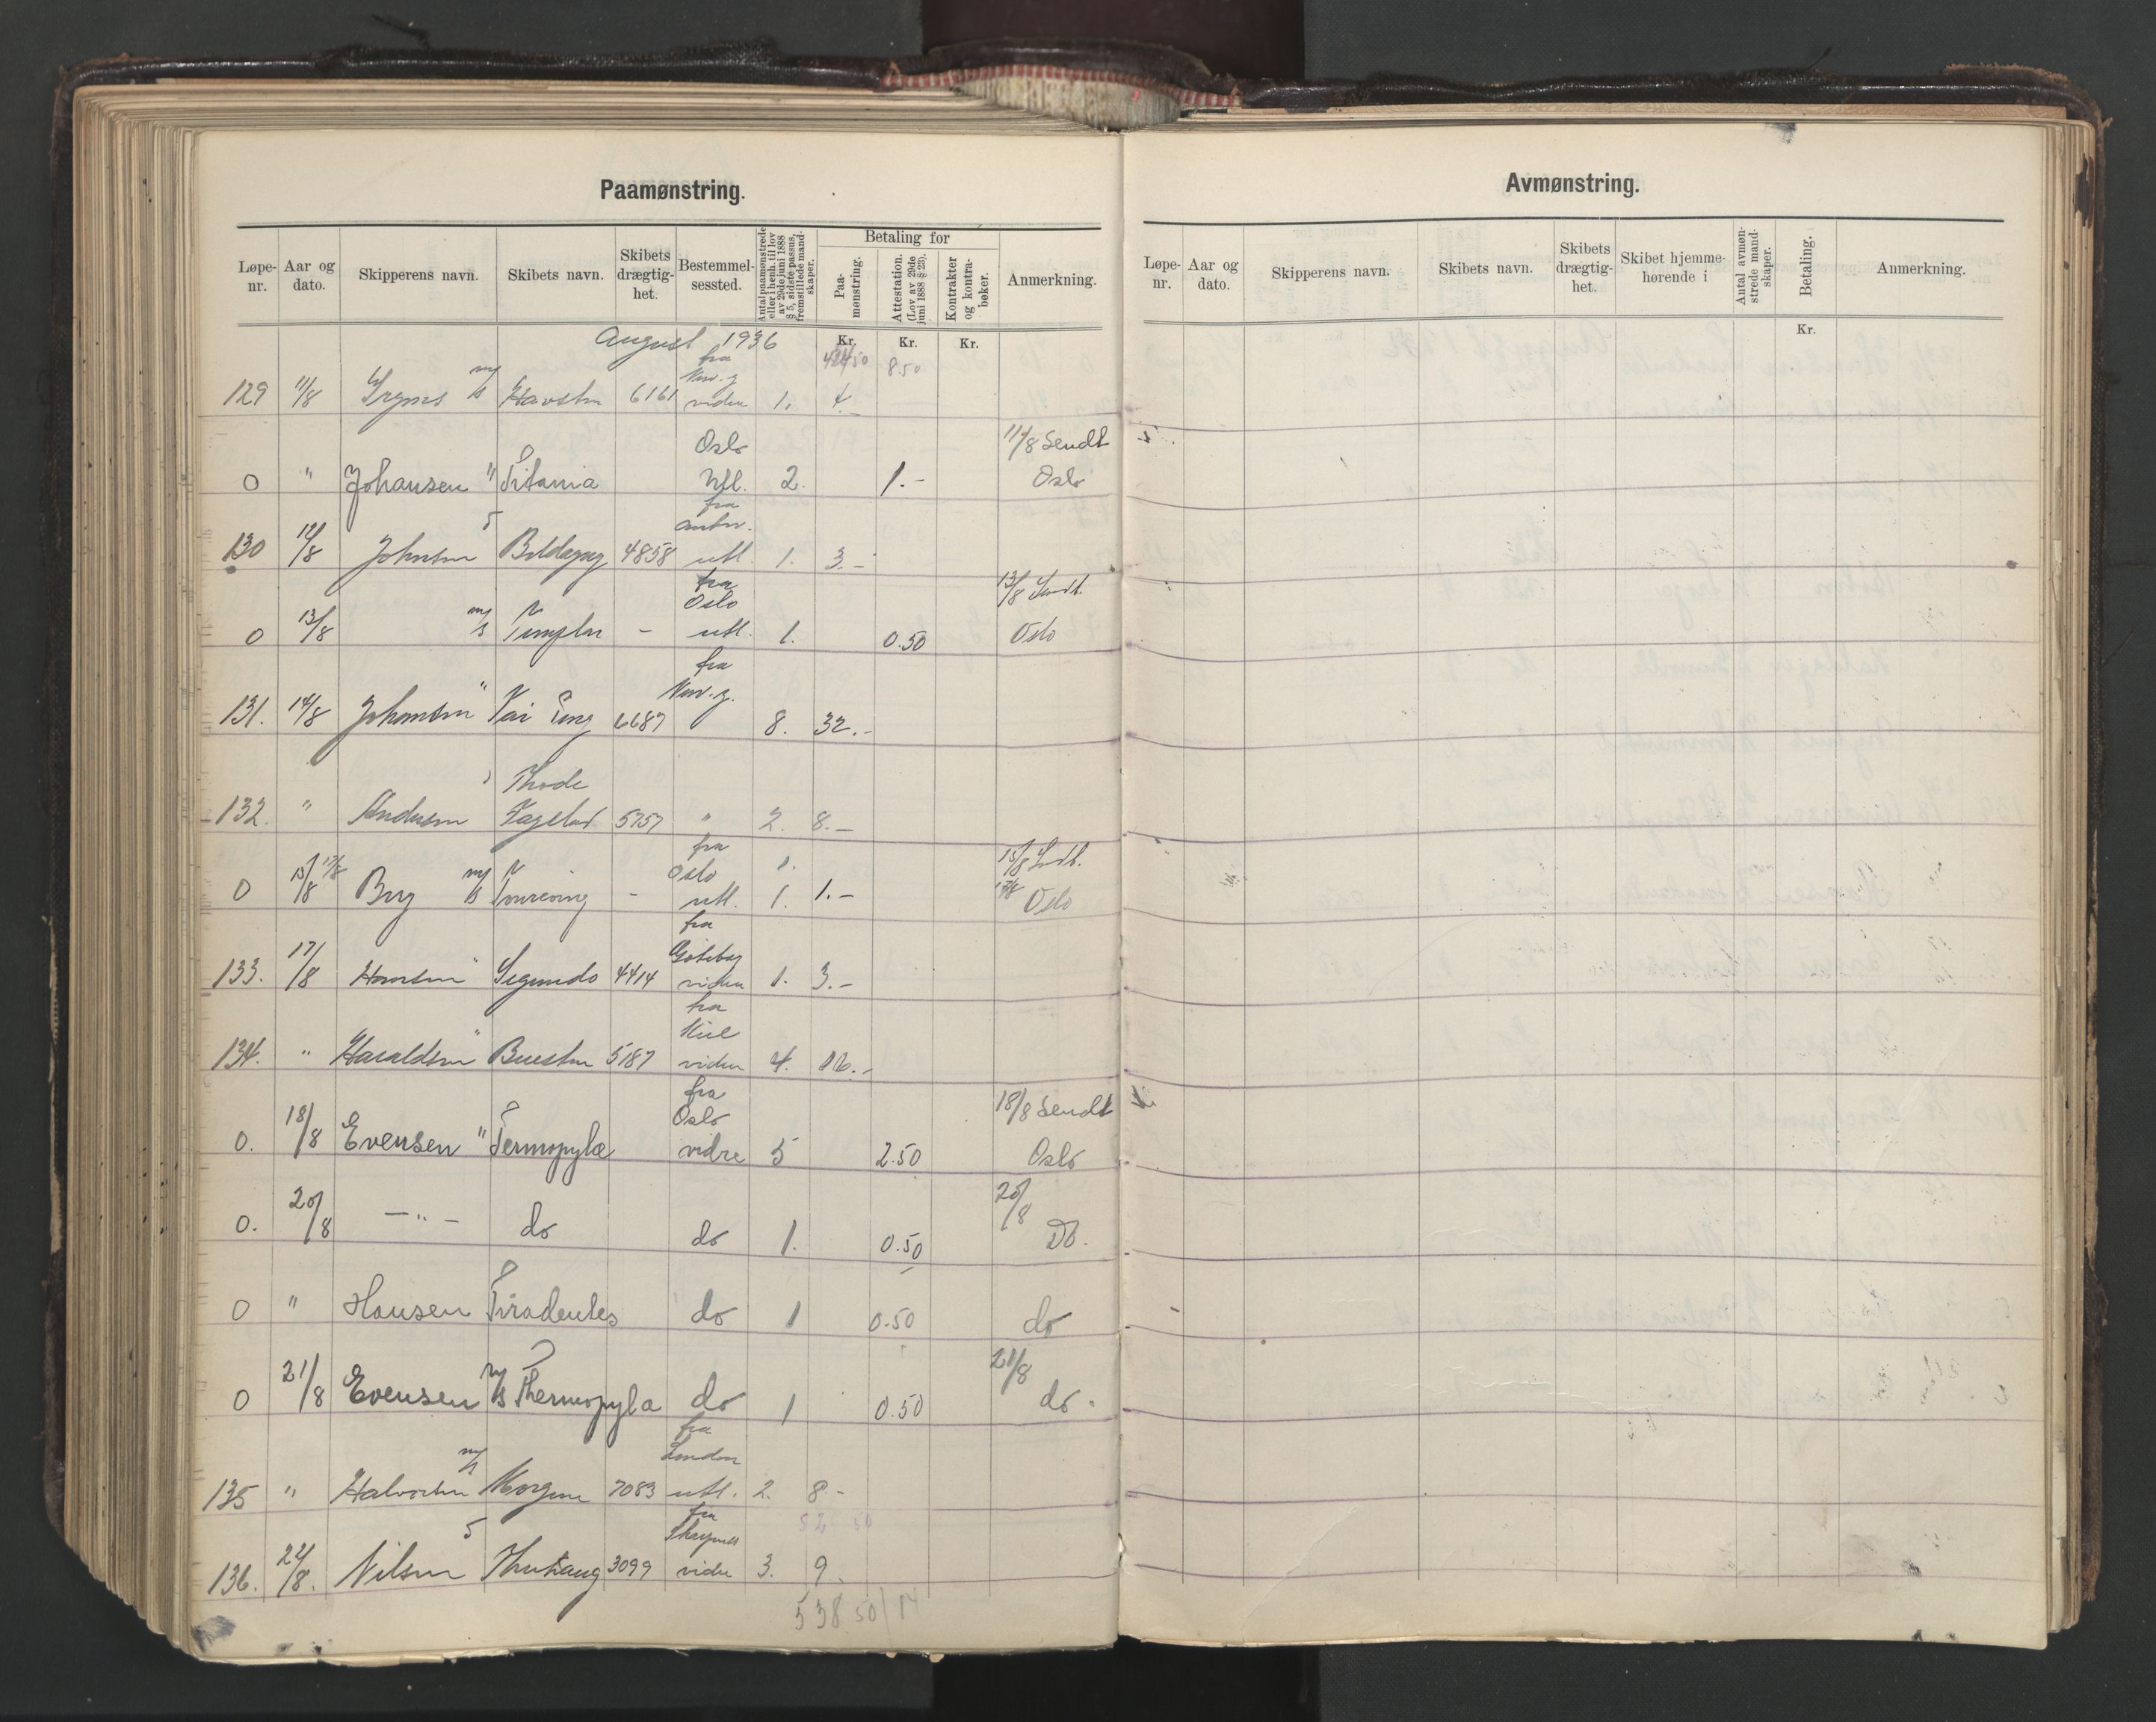 Paamønstring.
Løpe-nr. Aar og dato. Skipperens navn. Skibets navn. Skibets drægtig-het. Bestemmel-sessted. Antal paamønstrede eller i henh. til lov av 29de juni 1888 § 5, sidste passus, fremstillede mand-skaper. Betaling for Paa-mønstring. Attestation. (Lov av 29de juni 1888 § 23). Kontrakter og kontra-bøker. Anmerkning.
August 1936 Kr. Kr. Kr.
8.50
fra
129 11/8 m/s 6161 vidre 1. 4.-
Oslo 11/8 Sendt
0 " Johansen " Titania Utl. 2. 1.- Oslo
fra
130 12/8 Johnsen s 4858 utl. 1. 3.-
fra
Oslo 13/8 Sendt.
0 13/8 m/s Templar - utl. 1. 0.50 Oslo
fra
131. 14/8 Johansen " Tai Ping 6687 8. 32.-
Thode
132. " Andersen " Fagelund 5757 " 2. 8.-
fra
Oslo 1. 15/8 Sendt.
0 15/8 17/8 Berg m/s Touraine - utl. 1. 1.- 17/8 Oslo
fra
Göteborg
133. 17/8 Hansen " Segundo 4414 vidre 1. 3.-
fra
Kiel
134. " Haraldsen " 5187 vidre 4. 16.-
fra
Oslo 18/8 Sendt
0. 18/8 Evensen " Termopylæ vidre 5 2.50 Oslo
0. 20/8 -"- do do 1. 0.50 20/8 Do.
0 " Hansen Tiradentes do 1 0.50 do
0 21/8 Evensen m/s Thermopylæ do 1 0.50 21/8 do.
fra
London
135 " Halvorsen m/s 7083 utl. 2. 8-
fra
136. 22/8. Nilsen s 3099 vidre 3. 9.
538.50/14
Avmønstring.
Løpe-nr. Aar og dato. Skipperens navn. Skibets navn. Skibets drægtig-het. Skibet hjemme-hørende i Antal avmøn-strede mand-skaper. Betaling. Anmerkning.
Kr.